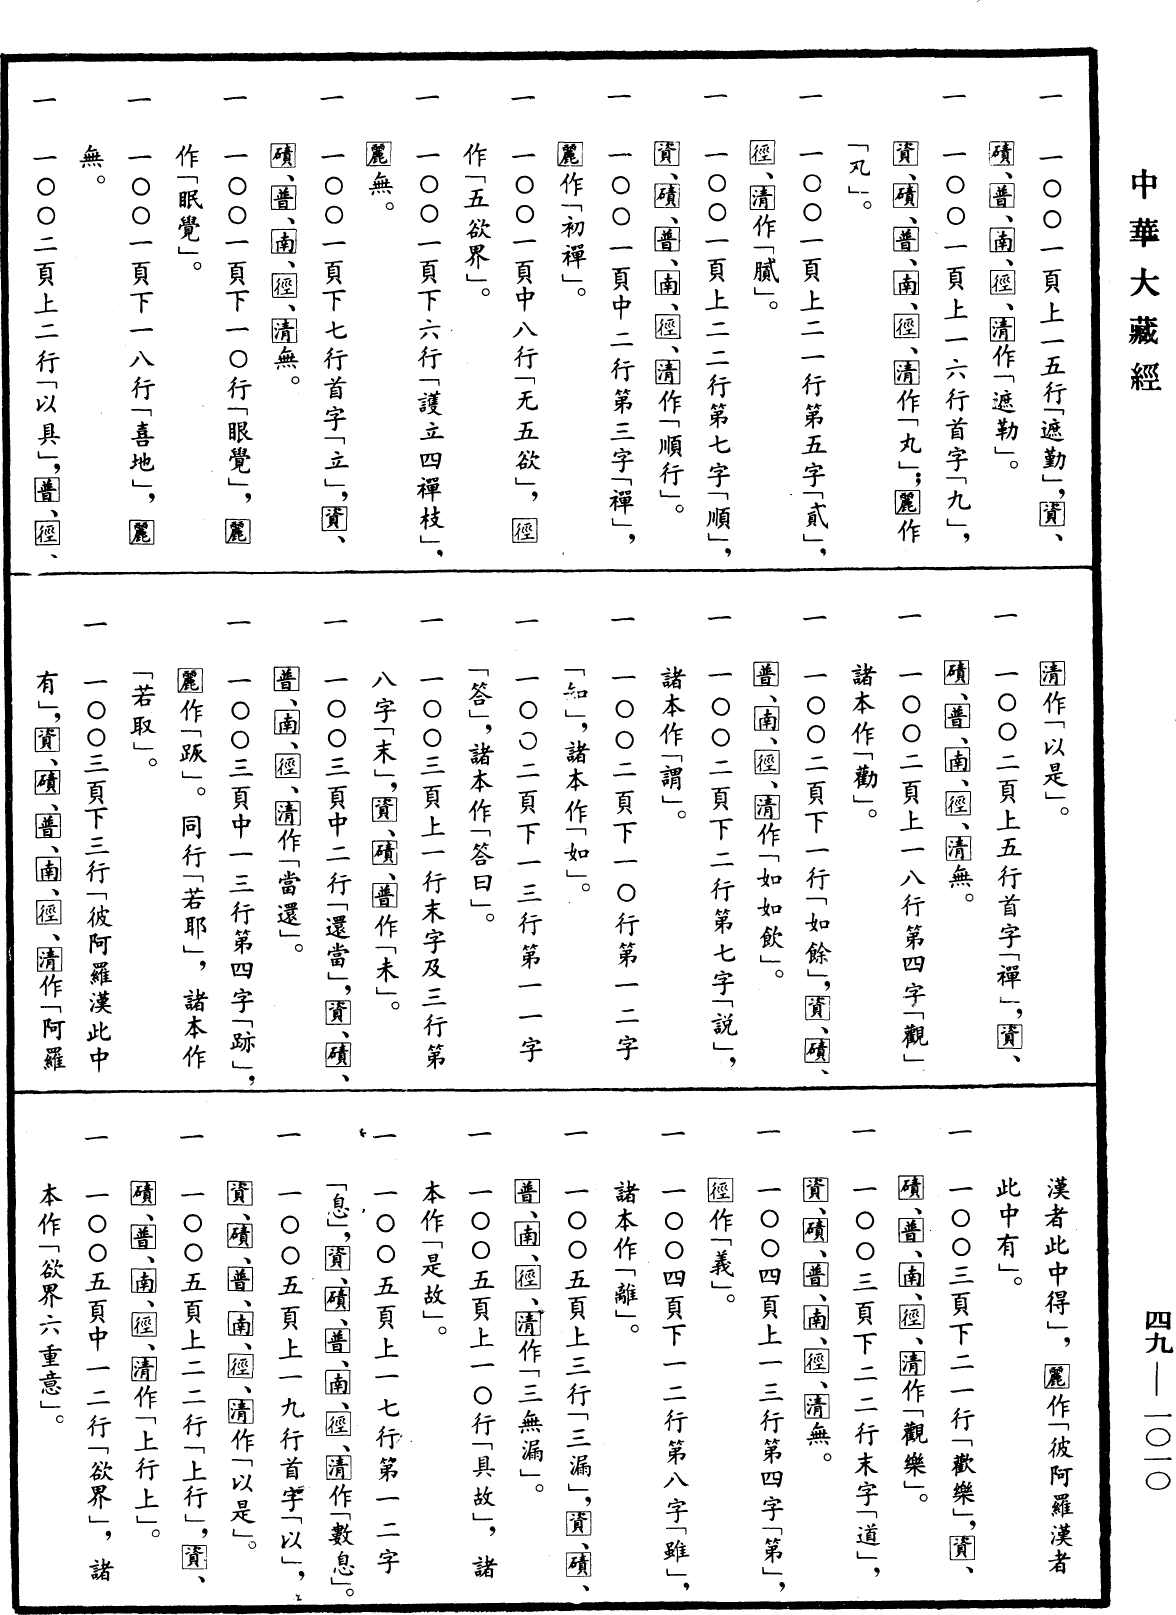 中華大藏經
四九—一〇一〇
一 一〇〇一頁上一五行「遮勤」，資、
磧、普、南、徑、清作「遮勒」。
一 一〇〇一頁上一六行首字「九」，
資、磧、普、南、徑、清作「丸」；麗作
「𠃬」。
一 一〇〇一頁上二一行第五字「貳」，
徑、清作「膩」。
一 一〇〇一頁上二二行第七字「順」，
資、磧、普、南、徑、清作「順行」。
一 一〇〇一頁中二行第三字「禪」，
麗作「初禪」。
一 一〇〇一頁中八行「无五欲」，徑
作「五欲界」。
一 一〇〇一頁下六行「護立四禪枝」，
麗無。
一 一〇〇一頁下七行首字「立」，資、
磧、普、南、徑、清無。
一 一〇〇一頁下一〇行「眼覺」，麗
作「眠覺」。
一 一〇〇一頁下一八行「喜地」，麗
無。
一 一〇〇二頁上二行「以具」，普、徑、
清作「以是」。
一 一〇〇二頁上五行首字「禪」，資、
磧、普、南、徑、清無。
一 一〇〇二頁上一八行第四字「觀」
諸本作「勸」。
一 一〇〇二頁下一行「如餘」，資、磧、
普、南、徑、清作「如如飲」。
一 一〇〇二頁下二行第七字「説」，
諸本作「謂」。
一 一〇〇二頁下一〇行第一二字
「知」，諸本作「如」。
一 一〇〇二頁下一三行第一一字
「答」，諸本作「答曰」。
一 一〇〇三頁上一行末字及三行第
八字「末」，資、磧、普作「未」。
一 一〇〇三頁中二行「還當」，資、磧、
普、南、徑、清作「當還」。
一 一〇〇三頁中一三行第四字「跡」，
麗作「䟦」。同行「若耶」，諸本作
「若取」。
一 一〇〇三頁下三行「彼阿羅漢此中
有」，資、磧、普、南、徑、清作「阿羅
漢者此中得」，麗作「彼阿羅漢者
此中有」。
一 一〇〇三頁下二一行「歡樂」，資、
磧、普、南、徑、清作「觀樂」。
一 一〇〇三頁下二二行末字「道」，
資、磧、普、南、徑、清無。
一 一〇〇四頁上一三行第四字「第」，
徑作「義」。
一 一〇〇四頁下一二行第八字「雖」，
諸本作「離」。
一 一〇〇五頁上三行「三漏」，資、磧、
普、南、徑、清作「三無漏」。
一 一〇〇五頁上一〇行「具故」，諸
本作「是故」。
一 一〇〇五頁上一七行第一二字
「息」，資、磧、普、南、徑、清作「數息」。
一 一〇〇五頁上一九行首字「以」，
資、磧、普、南、徑、清作「以是」。
一 一〇〇五頁上二二行「上行」，資、
磧、普、南、徑、清作「上行上」。
一 一〇〇五頁中一二行「欲界」，諸
本作「欲界六重意」。